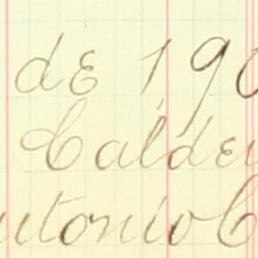 de 190
Calder
utonio C